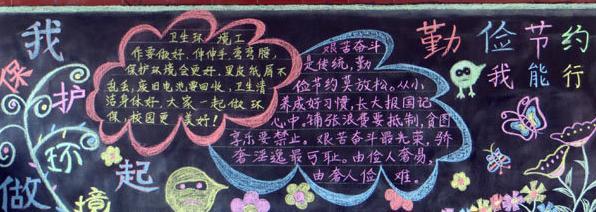 我
保护环境
做起
卫生环境工
作要做好,伸伸手,弯弯腰,
保护环境会更好,果皮纸屑不
乱丢,废旧电池要回收,卫生清
洁身体好,大家一起做环
保,校园更美好!
艰苦奋斗
是传统,勤
俭节约莫放松。从小
养成好习惯,长大报国记
心中。铺张浪费要抵制,贪图
享乐要禁止。艰苦奋斗最光荣,骄
奢淫逸最可耻。由俭入奢易,
由奢入俭难。
勤俭节约
我能行